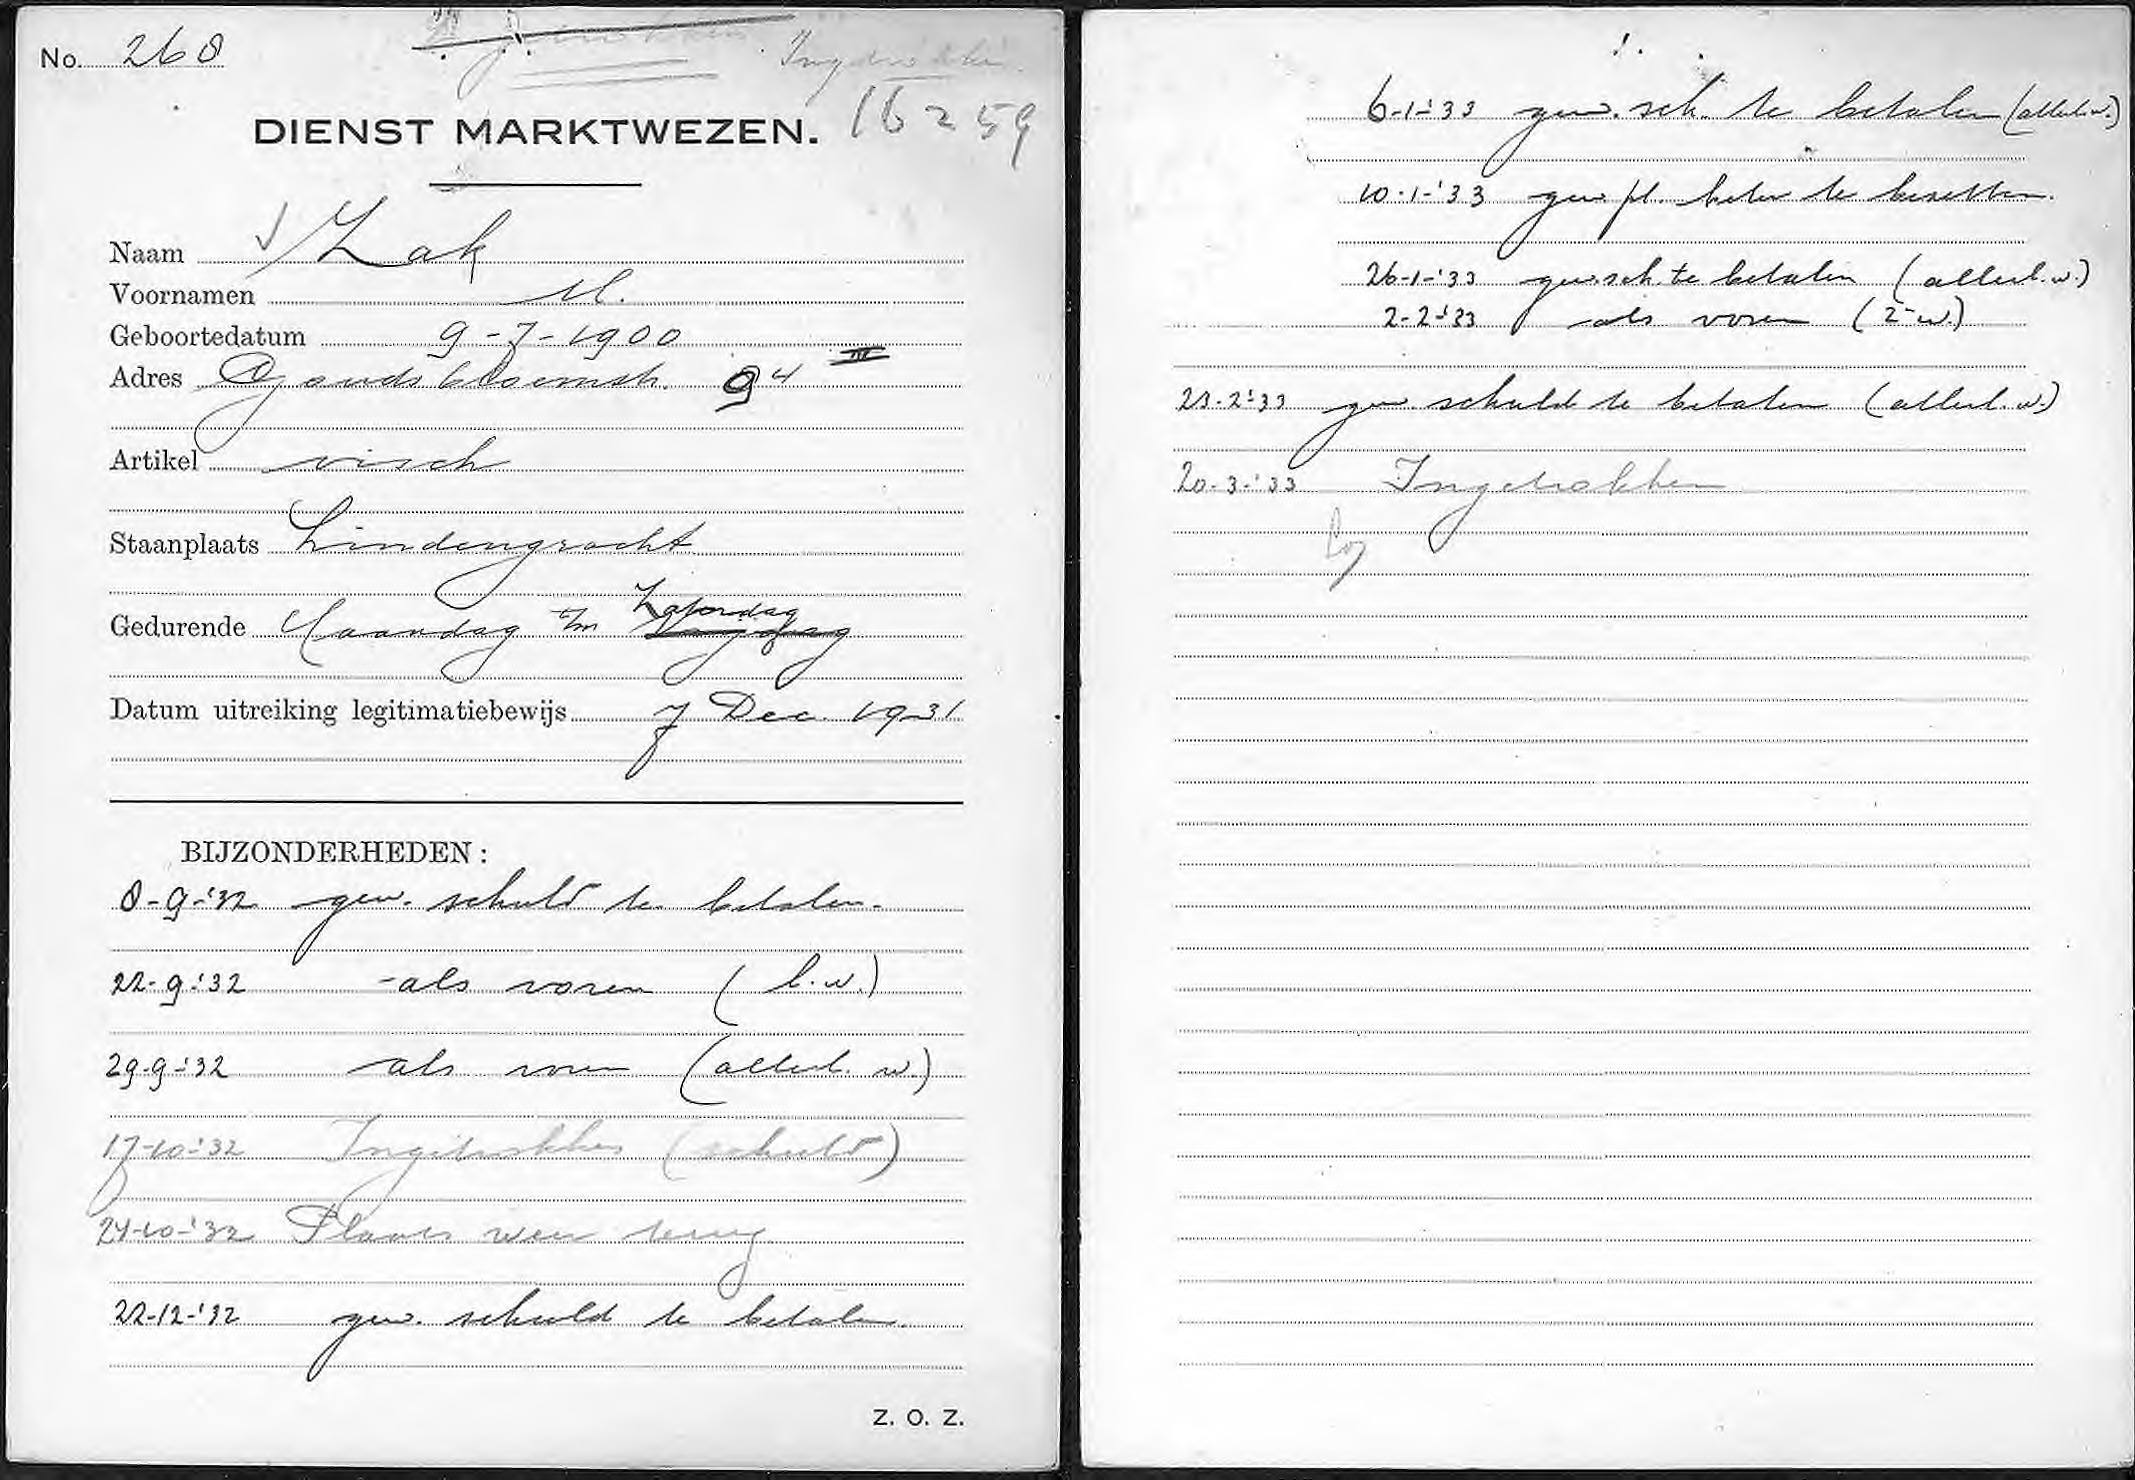 No. 268
Ingetrokken
16259
DIENST MARKTWEZEN.
Naam Zak
Voornamen M.
Geboortedatum 9-7-1900
Adres Goudsbloemstr. 94 III
Artikel visch
Staanplaats Lindengracht
Zaterdag
Gedurende Maandag t/m
Datum uitreiking legitimatiebewijs 7 Dec. 1931
BIJZONDERHEDEN:
8-9-'32 gew. schuld te betalen.
22-9-'32 -als voren (l.w.)
29-9-'32 als voren (allerl. w.)
17-10-'32 Ingetrokken (schuld)
24-10-'32 Plaats weer terug
22-12-'32 gew. schuld te betalen.
Z. O. Z.
6-1-'33 gew. sch. te betalen (allerl. w.)
10-1-'33 gew pl. beter te bezetten.
26-1-'33 gew. sch. te betalen (allerl. w.)
2-2-'33 als voren (2-w.)
23-2-'33 gew. schuld te betalen (allerl. w.)
20-3-'33 Ingetrokken